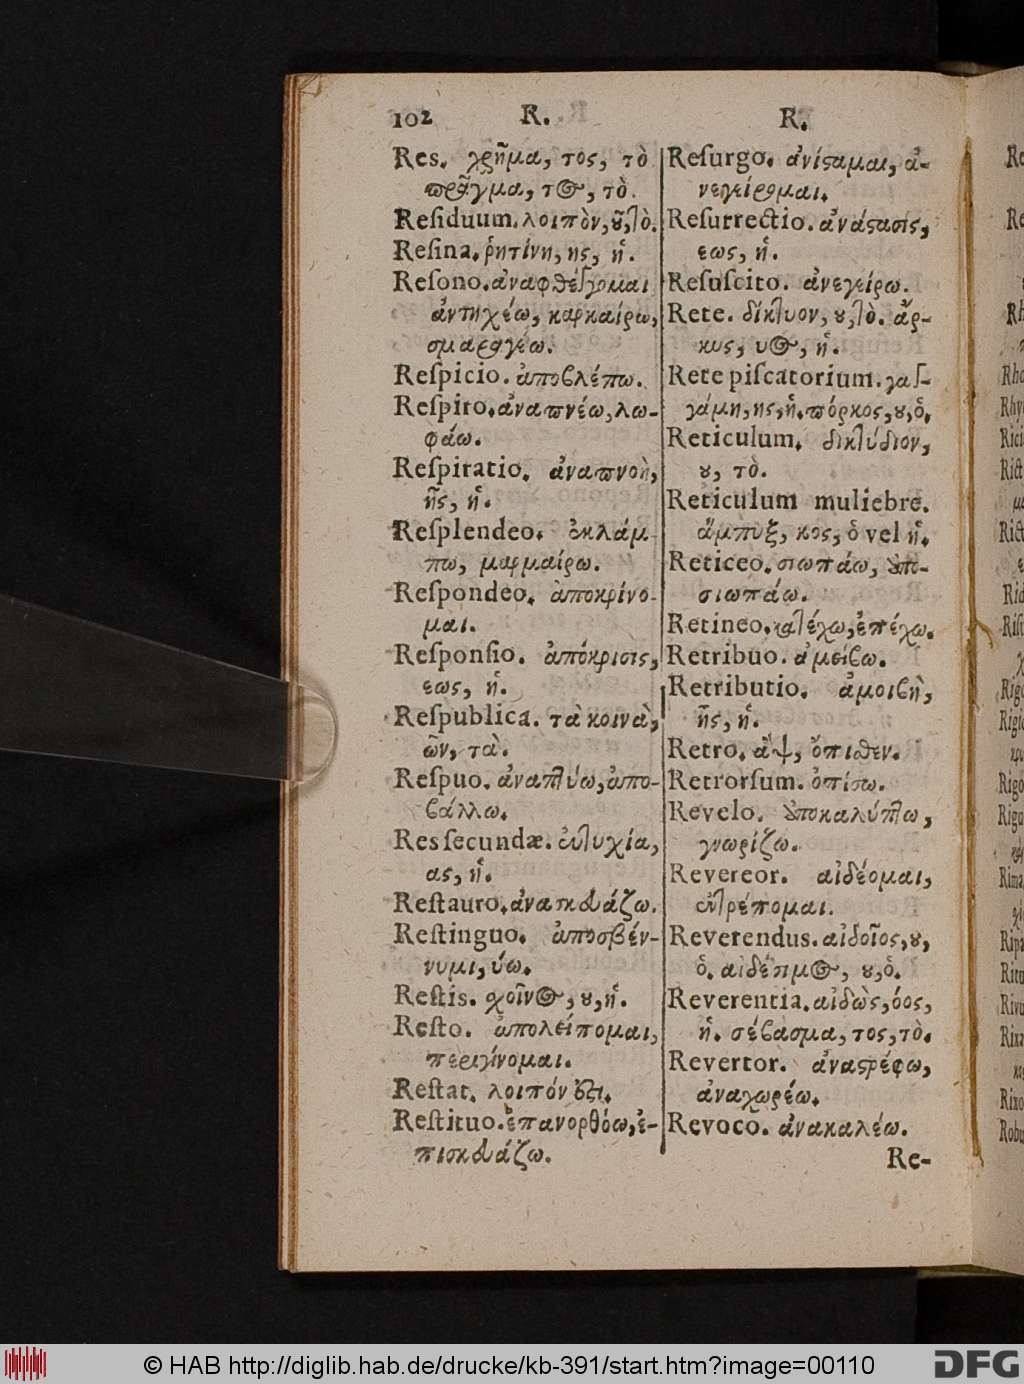 102 R. R.
Res. χρῆμα, τος, τὸ
πρᾶγμα, τος, τὸ.
Reſiduum. λοιπὸν, ȣ͂, τὸ.
Reſina. ῥητίνη, ης, ἡ.
Reſono. ἀναφθέγγομαι
ἀντηχέω, καρκαίρω,
σμαραγέω.
Reſpicio. ἀποβλέπω.
Reſpiro. ἀναπνέω, λω-
φάω.
Reſpiratio. ἀναπνοὴ,
ῆς, ἡ.
Reſplendeo. ἐκλάμ
πω, μαρμαίρω.
Reſpondeo. ἀποκρίνο-
μαι.
Reſponſio. ἀπόκρισις,
εως, ἡ.
Reſpublica. τὰ κοινὰ,
ῶν, τὰ.
Reſpuo. ἀναπτύω, ἀπο-
βάλλω.
Res ſecundæ. εὐτυχία,
ας, ἡ.
Reſtauro. ἀνασκευάζω.
Reſtinguo. ἀποσβέν-
νυμι, ύω.
Reſtis. σχοῖνος, ȣ, ἡ.
Reſto. ἀπολείπομαι,
περιγίνομαι.
Reſtat. λοιπόν ἐστι.
Reſtituo. ἐπανορθόω, ἐ-
πισκευάζω.
Reſurgo. ἀνίσταμαι, ἀ-
νεγείρομαι.
Reſurrectio. ἀνάστασις,
εως, ἡ.
Reſuſcito. ἀνεγείρω.
Rete. δίκτυον, ȣ, τὸ. ἄρ-
κυς, υος, ἡ.
Rete piſcatorium. γαγ-
γάμη, ης, ἡ. πόρκος, ȣ, ὁ.
Reticulum. δικτύδιον,
ȣ, τὸ.
Reticulum muliebre.
ἄμπυξ, κος, ὁ vel ἡ.
Reticeo. σιωπάω, ὑπο-
σιωπάω.
Retineo. κατέχω, ἐπέχω.
Retribuo. ἀμείβω.
Retributio. ἀμοιβὴ,
ῆς, ἡ.
Retro. ἂψ, ὄπιθεν.
Retrorſum. ὀπίσω.
Revelo. ἀποκαλύπτω,
γνωρίζω.
Revereor. αἰδέομαι,
ἐντρέπομαι.
Reverendus. αἰδοῖος, ȣ,
ὁ. αἰδέσιμος, ȣ, ὁ.
Reverentia. αἰδὼς, όος,
ἡ. σέβασμα, τος, τὸ.
Revertor. ἀναστρέφω,
ἀναχωρέω.
Revoco. ἀνακαλέω.
Re-
© HAB http://diglib.hab.de/drucke/kb-391/start.htm?image=00110
DFG